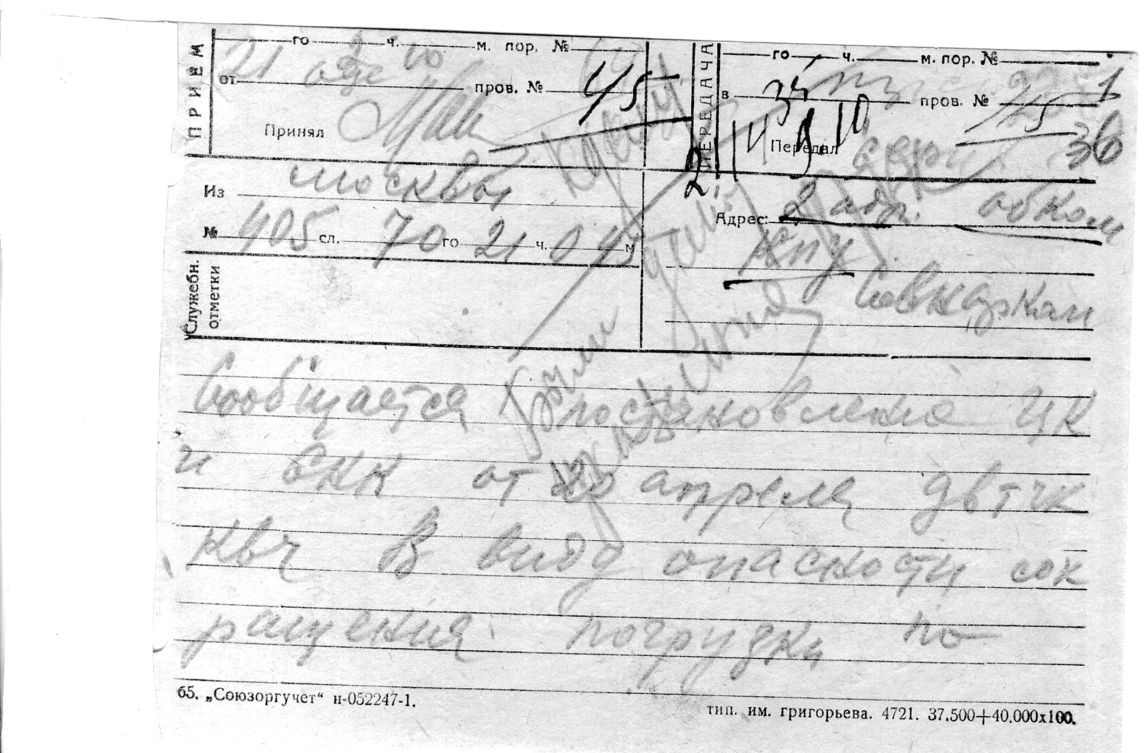 ПРИЕМ
го ч. м. пор. №
от пров. № 45
Принял
ПЕРЕДАЧА
го ч. м. пор. №
в пров. №
Передал
Из Москвы
№ 405 сл. 70 го 21 ч. 0 45 м
Адрес: 2 адр. обком
КПУ
Совнарком
Служебн. отметки
Сообщается постановление ЦК
и СНК от 20 апреля двтчк
квч В виду опасности сок
ращения погрузки по
б5. „Союзоргучет“ н-052247-1.
тип. им. григорьева. 4721. 37.500+40.000х100.